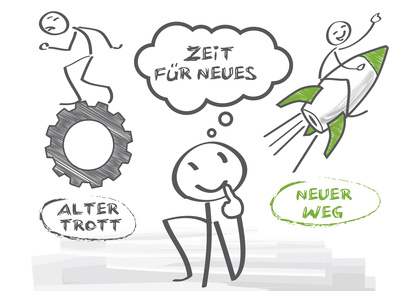 ZEIT
FÜR NEUES
ALTER
TROTT
NEUER
WEG